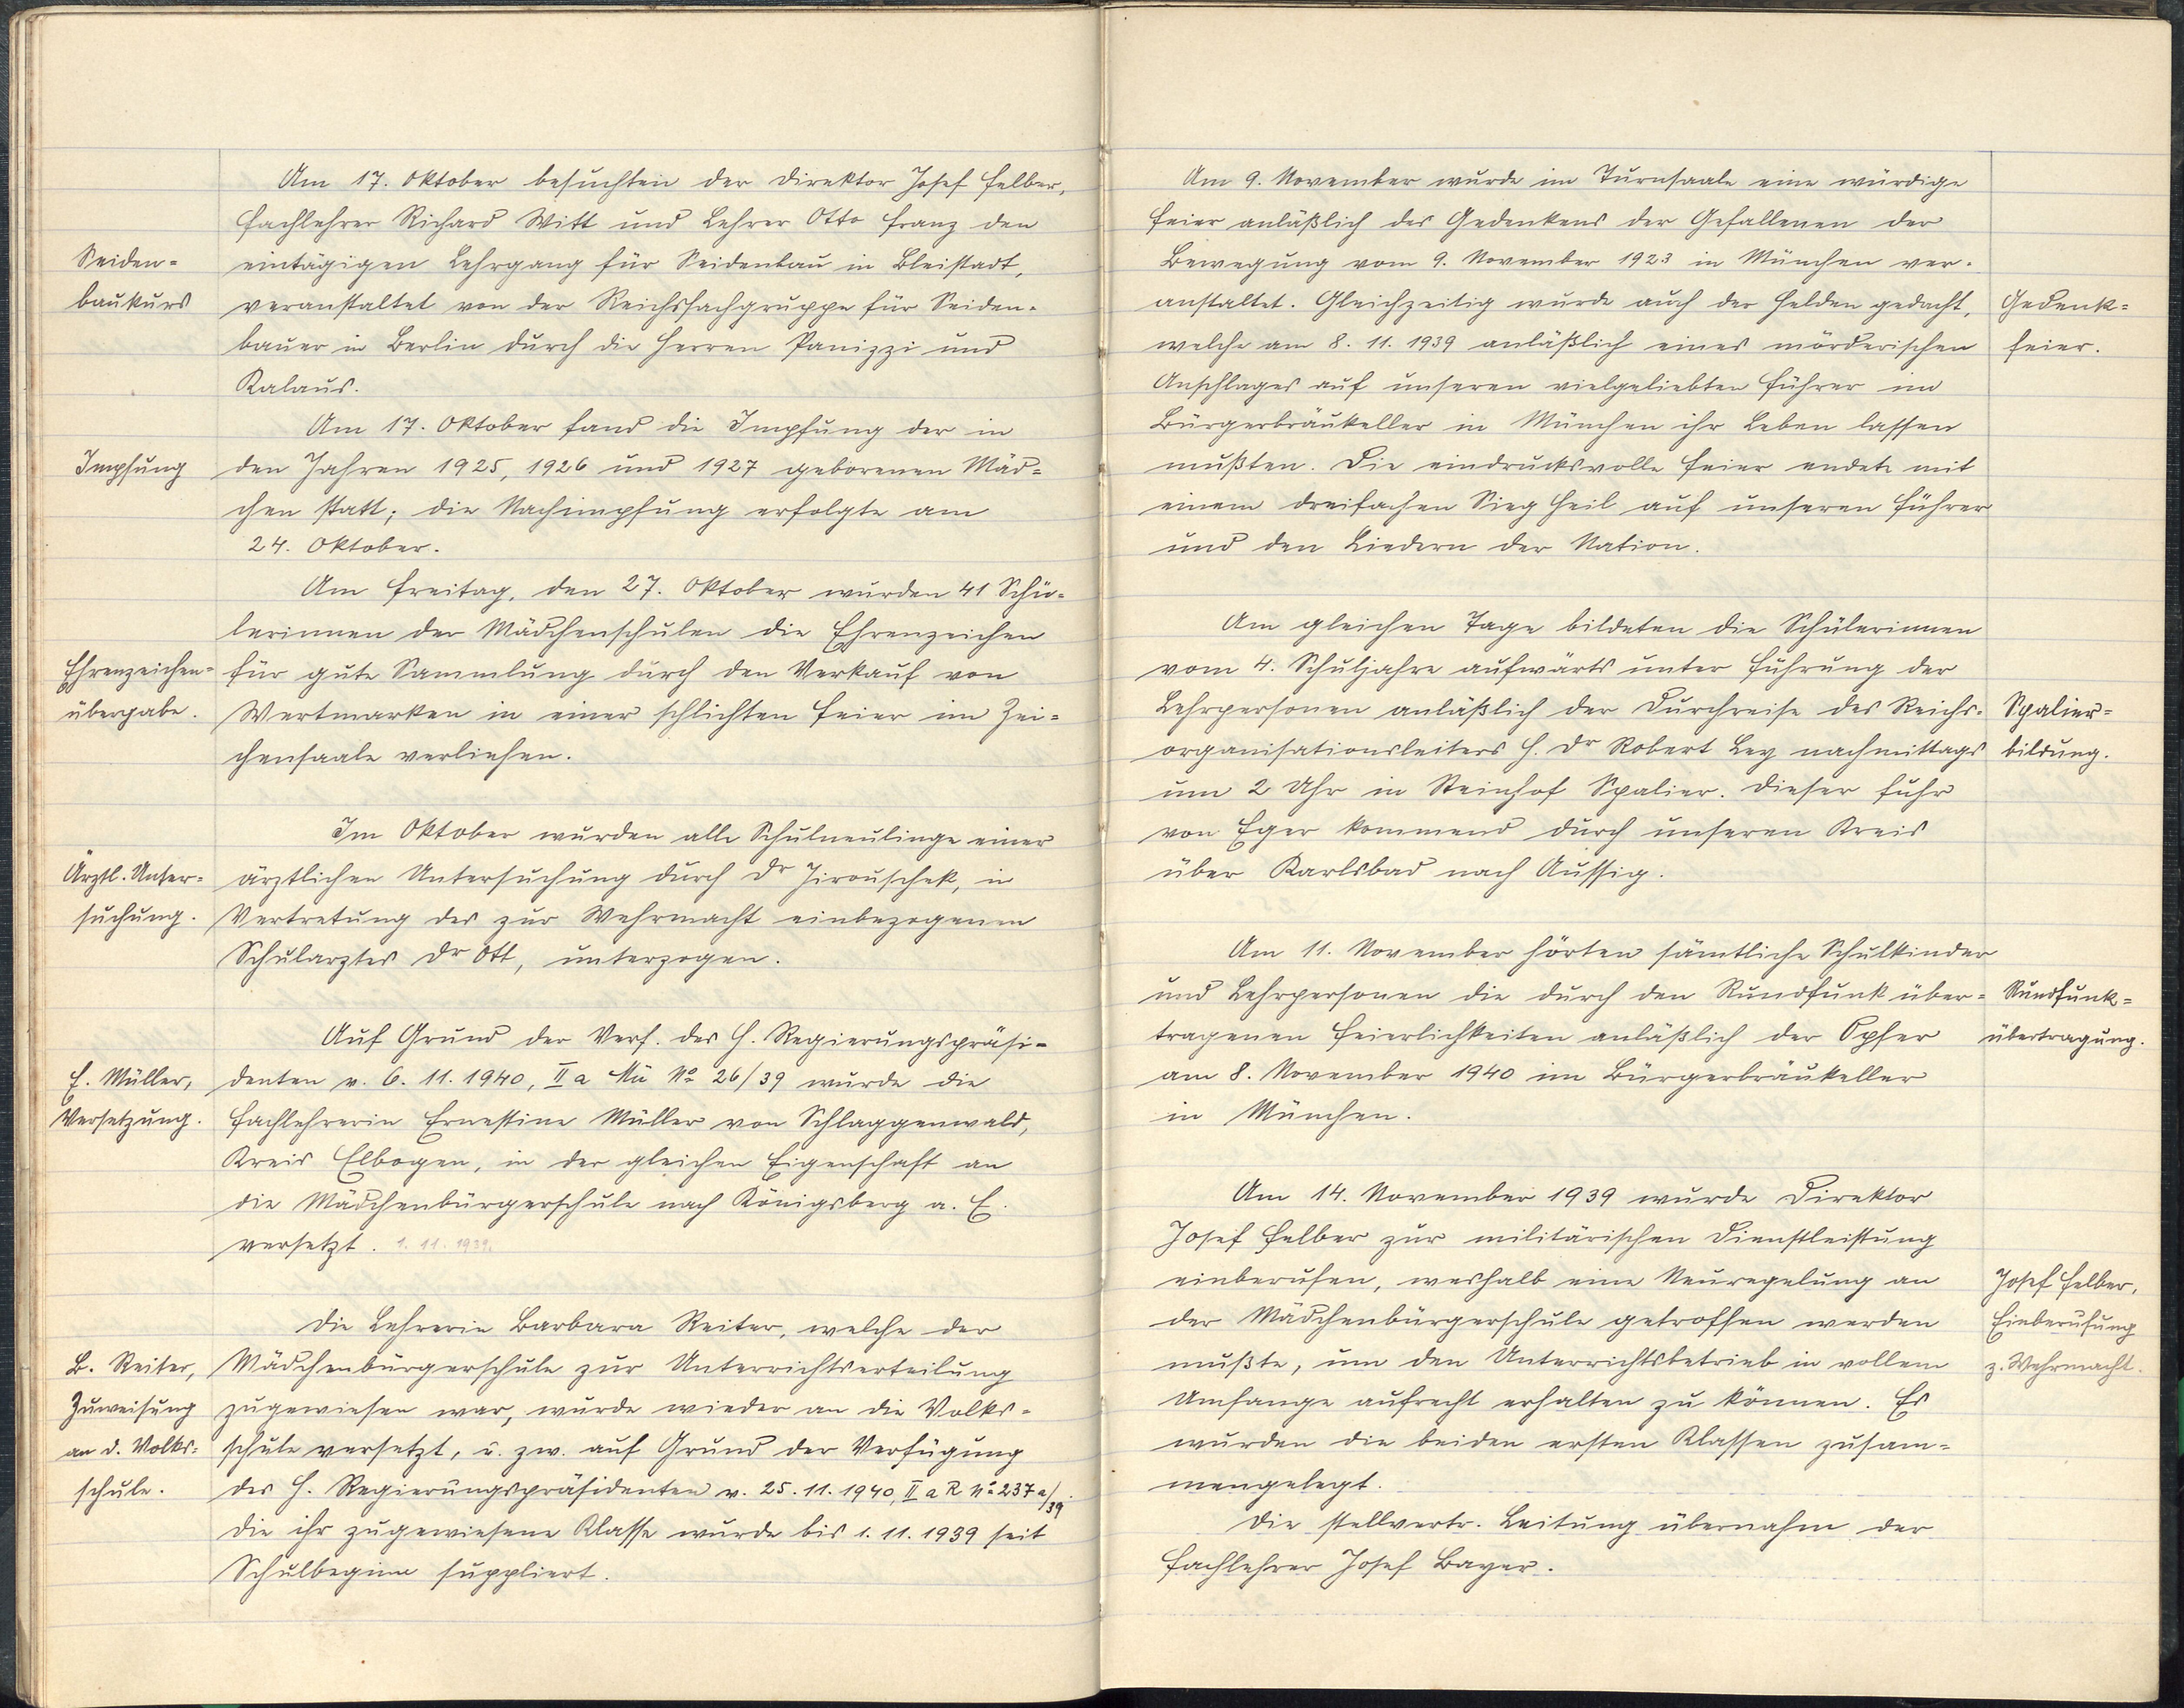 Am 17. Oktober besuchten der Direktor Josef Felber,
Fachlehrer Richard Witt und Lehrer Otto Franz den
Seiden= eintägigen Lehrgang für Seidenbau in Bleistadt,
baukurs veranstaltet von der Reichsfachgruppe für Seiden-
bauer in Berlin durch die Herren Panizzi und
Kalaus.
Am 17. Oktober fand die Impfung der in
Impfung den Jahren 1925, 1926 und 1927 geborenen Mäd=
chen statt; die Nachimpfung erfolgte am
24. Oktober.
Am Freitag, den 27. Oktober wurden 41 Schü-
lerinnen der Mädchenschulen die Ehrenzeichen
Ehrenzeichen= für gute Sammlung durch den Verkauf von
übergabe. Wertmarken in einer schlichten Feier im Zei=
chensaale verliehen.
Im Oktober wurden alle Schulneulinge einer
Ärztl. Unter= ärztlichen Untersuchung durch Dr Jirouschek, in
suchung. Vertretung des zur Wehrmacht einbezogenen
Schularztes Dr Ott, unterzogen.
Auf Grund der Verf. des H. Regierungspräsi-
E. Müller, denten v. 6. 11. 1940, II a Mü No 26/39 wurde die
Versetzung. Fachlehrerin Ernestine Müller von Schlaggenwald,
Kreis Elbogen, in der gleichen Eigenschaft an
die Mädchenbürgerschule nach Königsberg a. E.
versetzt. 1. 11. 1939.
Die Lehrerin Barbara Reiter, welche der
B. Reiter, Mädchenbürgerschule zur Unterrichtserteilung
Zuweisung zugewiesen war, wurde wieder an die Volks-
an d. Volks= schule versetzt, u. zw. auf Grund der Verfügung
schule. des H. Regierungspräsidenten v. 25. 11. 1940, II a R No 237 a/39.
Die ihr zugewiesene Klasse wurde bis 1. 11. 1939 seit
Schulbeginn suppliert.
Am 9. November wurde im Turnsaale eine würdige
Feier anläßlich des Gedenkens der Gefallenen der
Bewegung vom 9. November 1923 in München ver-
anstaltet. Gleichzeitig wurde auch der Helden gedacht, Gedenk=
welche am 8. 11. 1939 anläßlich eines mörderischen feier.
Anschlages auf unseren vielgeliebten Führer im
Bürgerbräukeller in München ihr Leben lassen
mußten. Die eindrucksvolle Feier endete mit
einem dreifachen Sieg Heil auf unseren Führer
und den Liedern der Nation.
Am gleichen Tage bildeten die Schülerinnen
vom 4. Schuljahre aufwärts unter Führung der
Lehrpersonen anläßlich der Durchreise des Reichs- Spalier=
organisationsleiters H. Dr Robert Ley nachmittags bildung.
um 2 Uhr in Steinhof Spalier. Dieser fuhr
von Eger kommend durch unseren Kreis
über Karlsbad nach Aussig.
Am 11. November hörten sämtliche Schulkinder
und Lehrpersonen die durch den Rundfunk über= Rundfunk=
tragenen Feierlichkeiten anläßlich der Opfer übertragung.
am 8. November 1940 im Bürgerbräukeller
in München.
Am 14. November 1939 wurde Direktor
Josef Felber zur militärischen Dienstleistung
einberufen, weshalb eine Neuregelung an Josef Felber,
der Mädchenbürgerschule getroffen werden Einberufung
mußte, um den Unterrichtsbetrieb in vollem z. Wehrmacht.
Umfange aufrecht erhalten zu können. Es
wurden die beiden ersten Klassen zusam=
mengelegt.
Die stellvertr. Leitung übernahm der
Fachlehrer Josef Bayer.